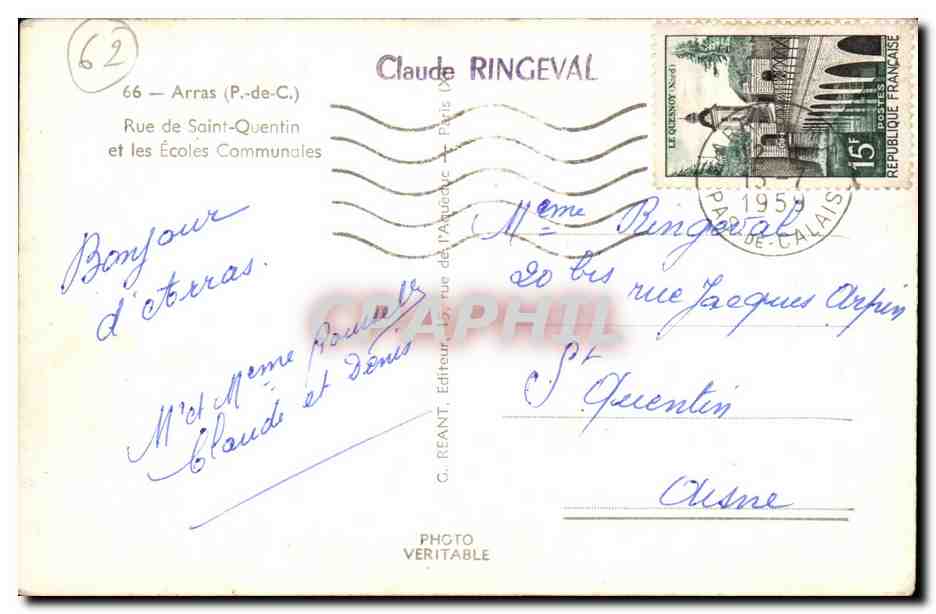 62
Claude RINGEVAL
66 — Arras (P.-de-C.)
Rue de Saint-Quentin
et les Écoles Communales
LE QUESNOY (Nord)
15F
POSTES
REPUBLIQUE FRANÇAISE
1959
PAS-DE-CALAIS
G. REANT, Editeur, 15, rue de l'Aqueduc — Paris (X
Bonjour
d'Arras.
Mr et Mme
Claude et Denis
Mme Ringeval
20 bis rue Jacques Arpin
St Quentin
Aisne
CPAPHIL
PHOTO
VERITABLE